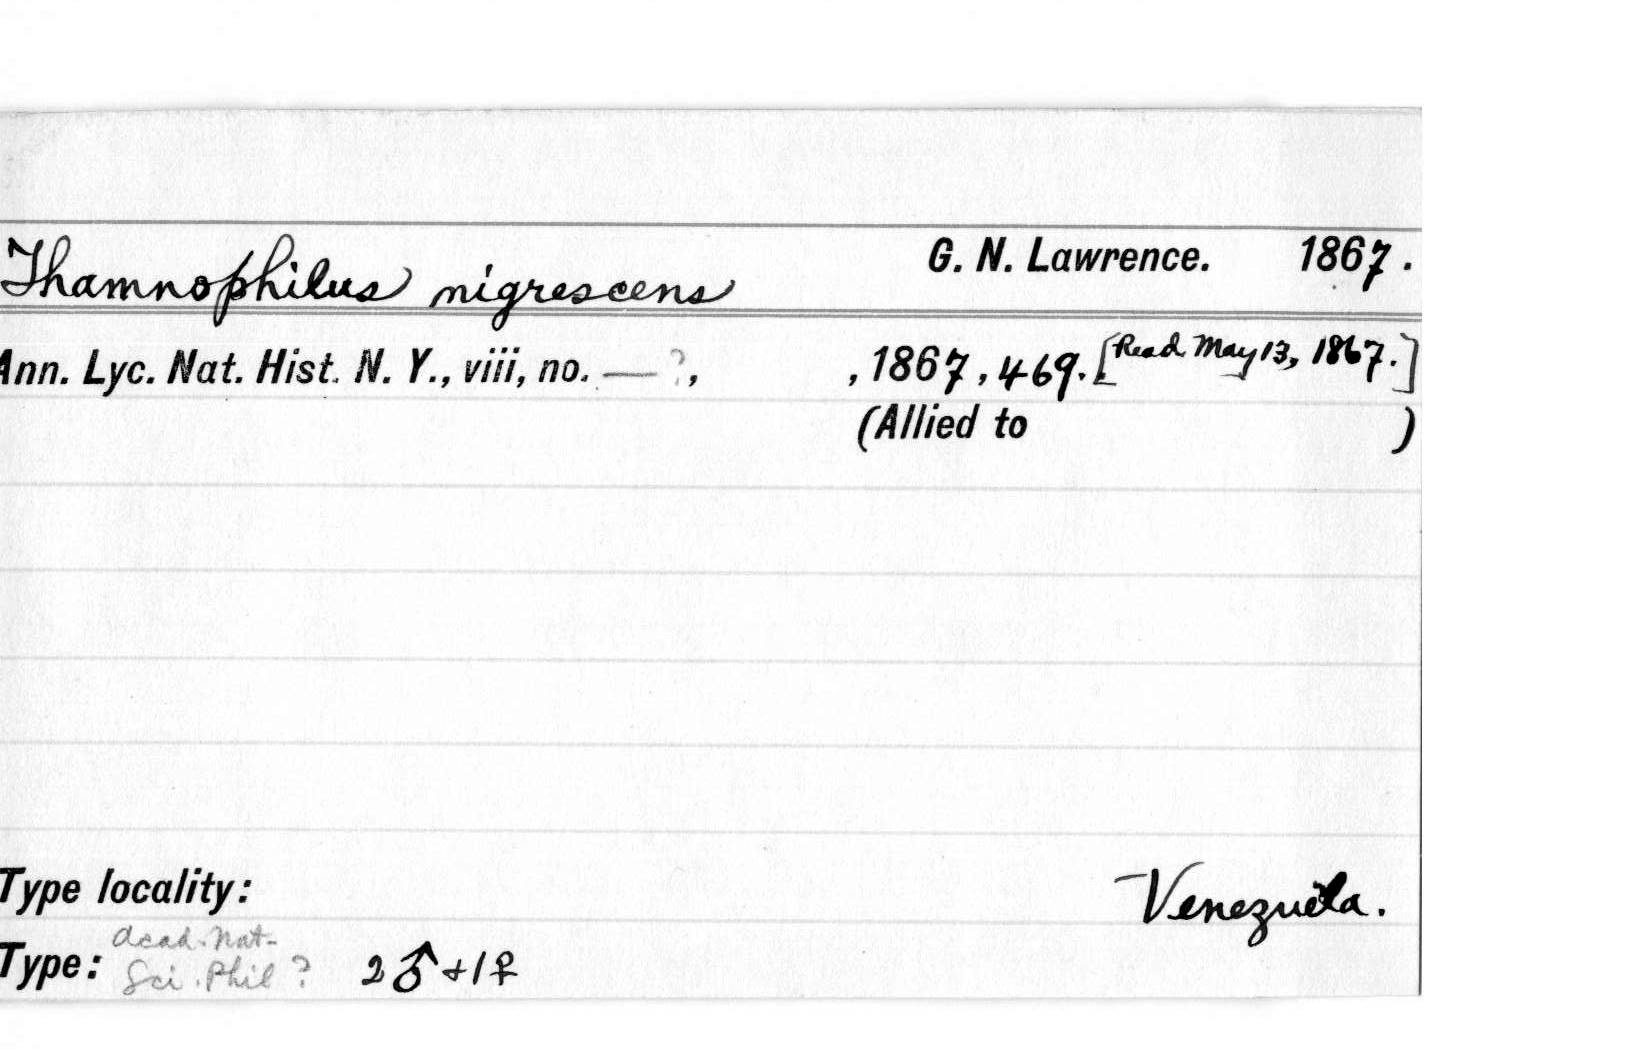 Thamnophilus nigrescens G. N. Lawrence. 1867.
Ann. Lyc. Nat. Hist. N. Y., viii, no. — ?, , 1867, 469. [Read May 13, 1867.]
(Allied to )
Type locality: Venezuela.
Acad. Nat.
Type: Sci. Phil ? 2 ♂ + 1 ♀